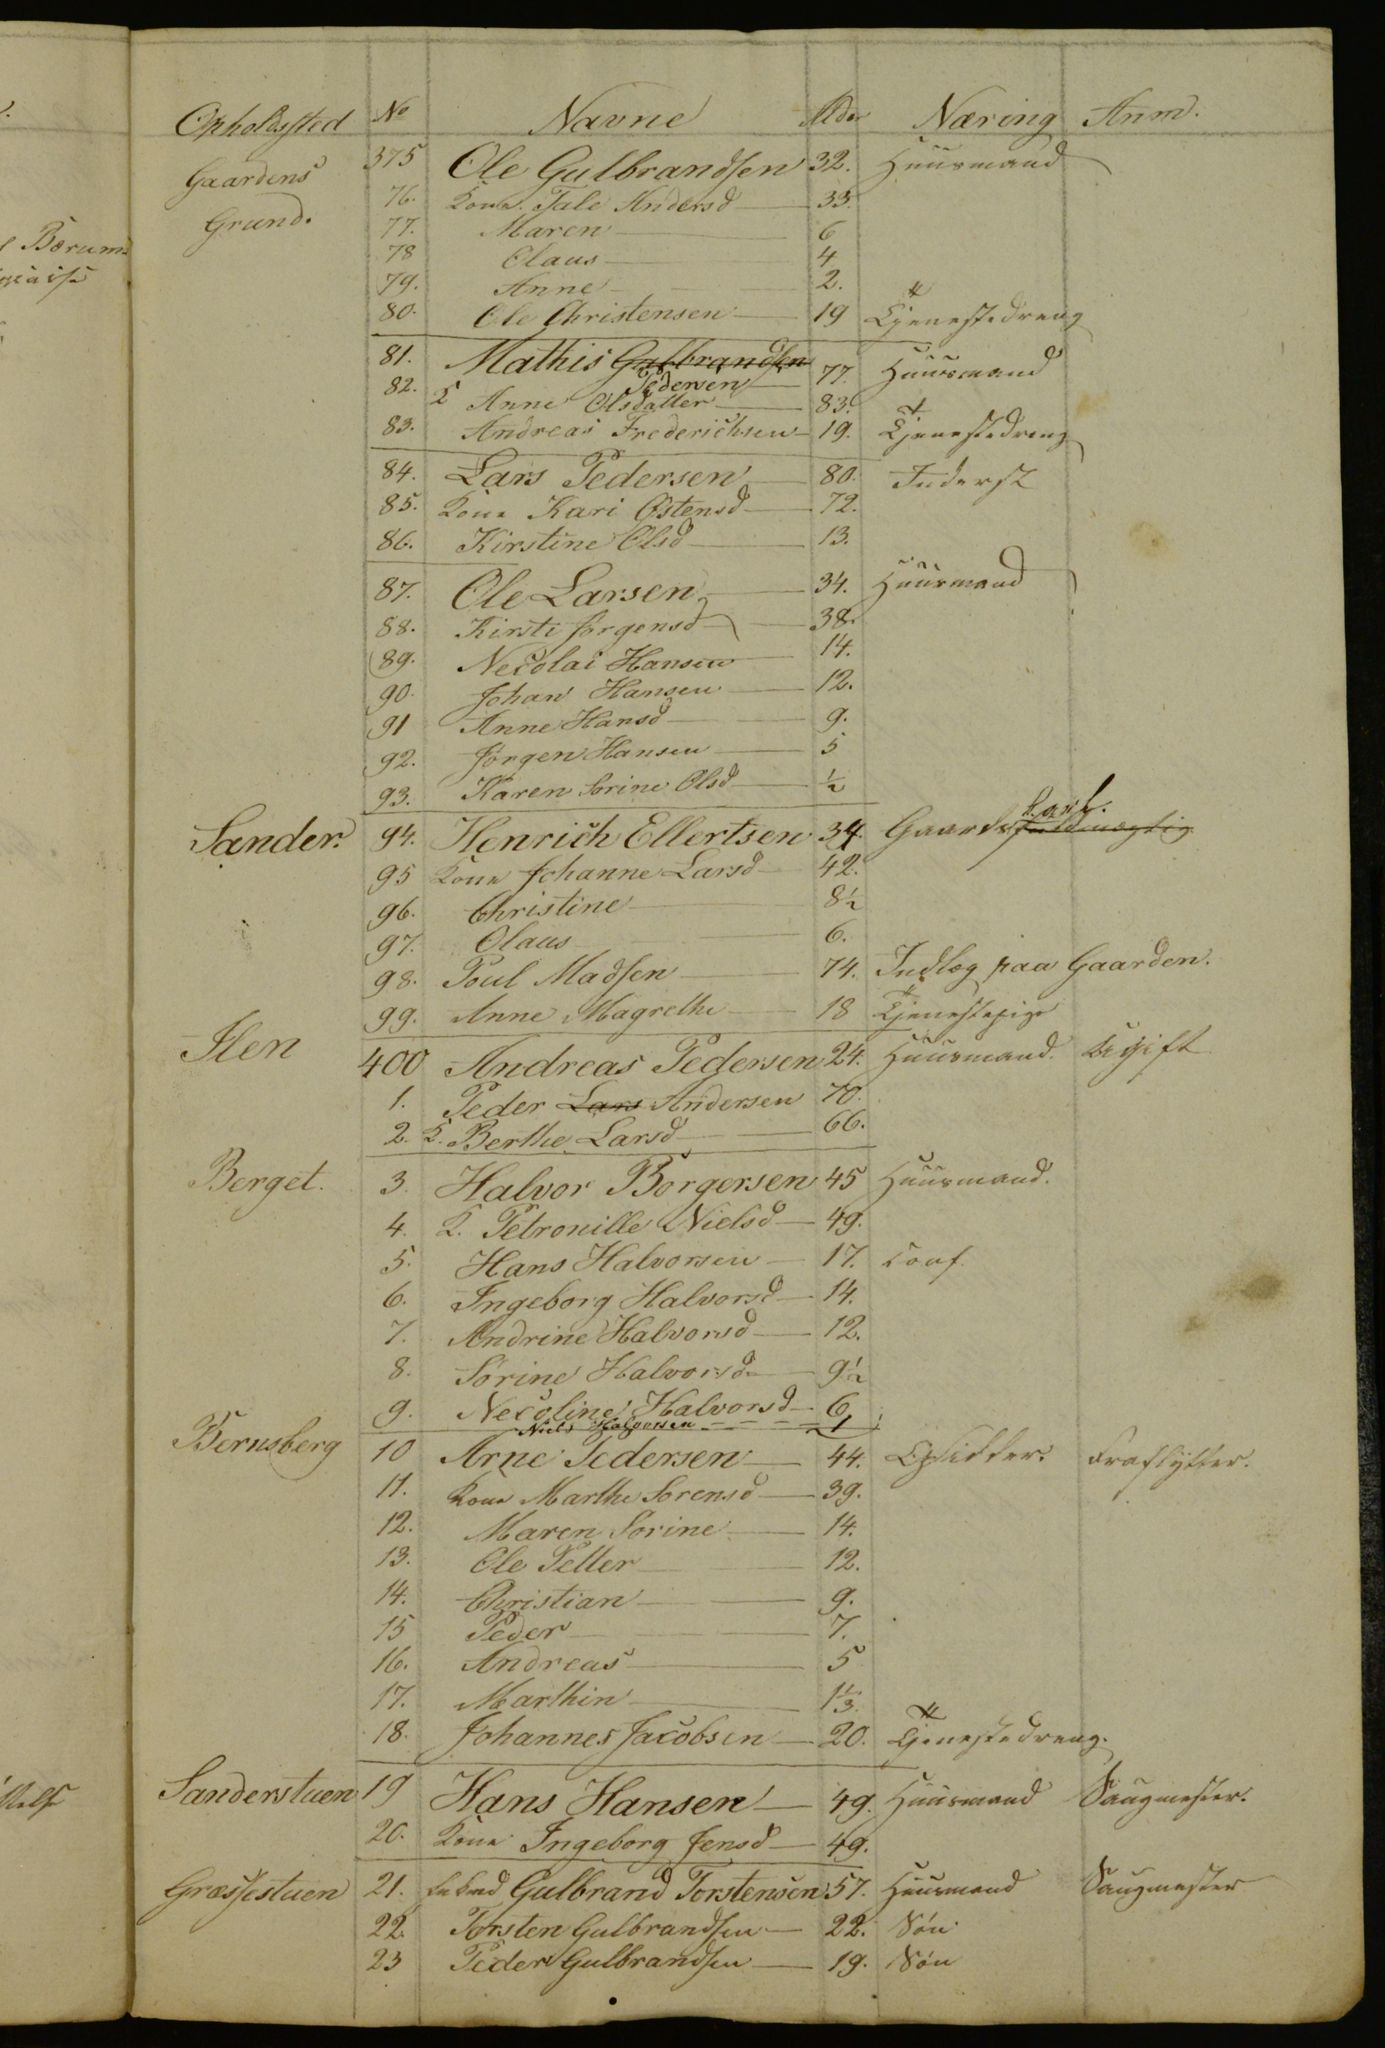 Opholdssted No Navne Alder Næring Anm.
Gaardens 375 Ole Gulbrandsen 32. Huusmand
Grund. 76. Kone Tale Andersd 33.
77. Maren 6
78 Olaus 4
79. Anne 2.
80. Ole Christensen 19 Tjenestedreng
81. Mathis Gulbrandsen
Pedersen 77. Huusmand
82. K Anne Olsdatter 83.
83. Andreas Frederichsen 19. Tjenestedreng
84. Lars Pedersen 80. Inderst
85. Kone Kari Østensd 72.
86. Kirstine Olsd 13.
87. Ole Larsen 34. Huusmand
88. Kirsti Jørgensd 38.
89. Necolai Hansen 14.
90. Johan Hansen 12.
91 Anne Hansd 9.
92. Jörgen Hansen 5
93. Karen Sorine Olsd ½
Sander. 94. Henrich Ellertsen 34. Gaards
95 Kone Johanne Larsd 42.
96. Christine 8½
97. Olaus 6.
98. Poul Madsen 74. Indlæg paa Gaarden.
99. Anne Magrethe 18 Tjenestepige
Ilen 400 Andreas Pedersen 24. Huusmand. Ugift
1. Peder Lars Andersen 70.
2. K. Berthe Larsd 66.
Berget. 3. Halvor Borgersen 45 Huusmand.
4. K. Petronille Nielsd 49.
5. Hans Halvorsen 17. Conf.
6. Ingeborg Halvorsd 14.
7. Andrine Halvorsd 12.
8. Sörine Halvorsd 9½
9. Necoline Halvorsd 6
Niels Halvorsen 1
Bernsberg 10 Arne Pedersen 44. Opsidder. Fraflytter.
11. Kone Marthe Sorensd 39.
12. Maren Sorine 14.
13. Ole Petter 12.
14. Christian 9.
15 Peder 7.
16. Andreas 5
17. Marthin 1⅓.
18. Johannes Jacobsen 20. Tjenestedreng.
Sanderstuen 19 Hans Hansen 49. Huusmand Saugmester.
20. Kone Ingeborg Jensd 49.
Græssestuen 21. Enkemd Gulbrand Torstensen 57. Huusmand Saugmester
22. Torsten Gulbrandsen 22. Sön
23 Peder Gulbrandsen 19. Sön